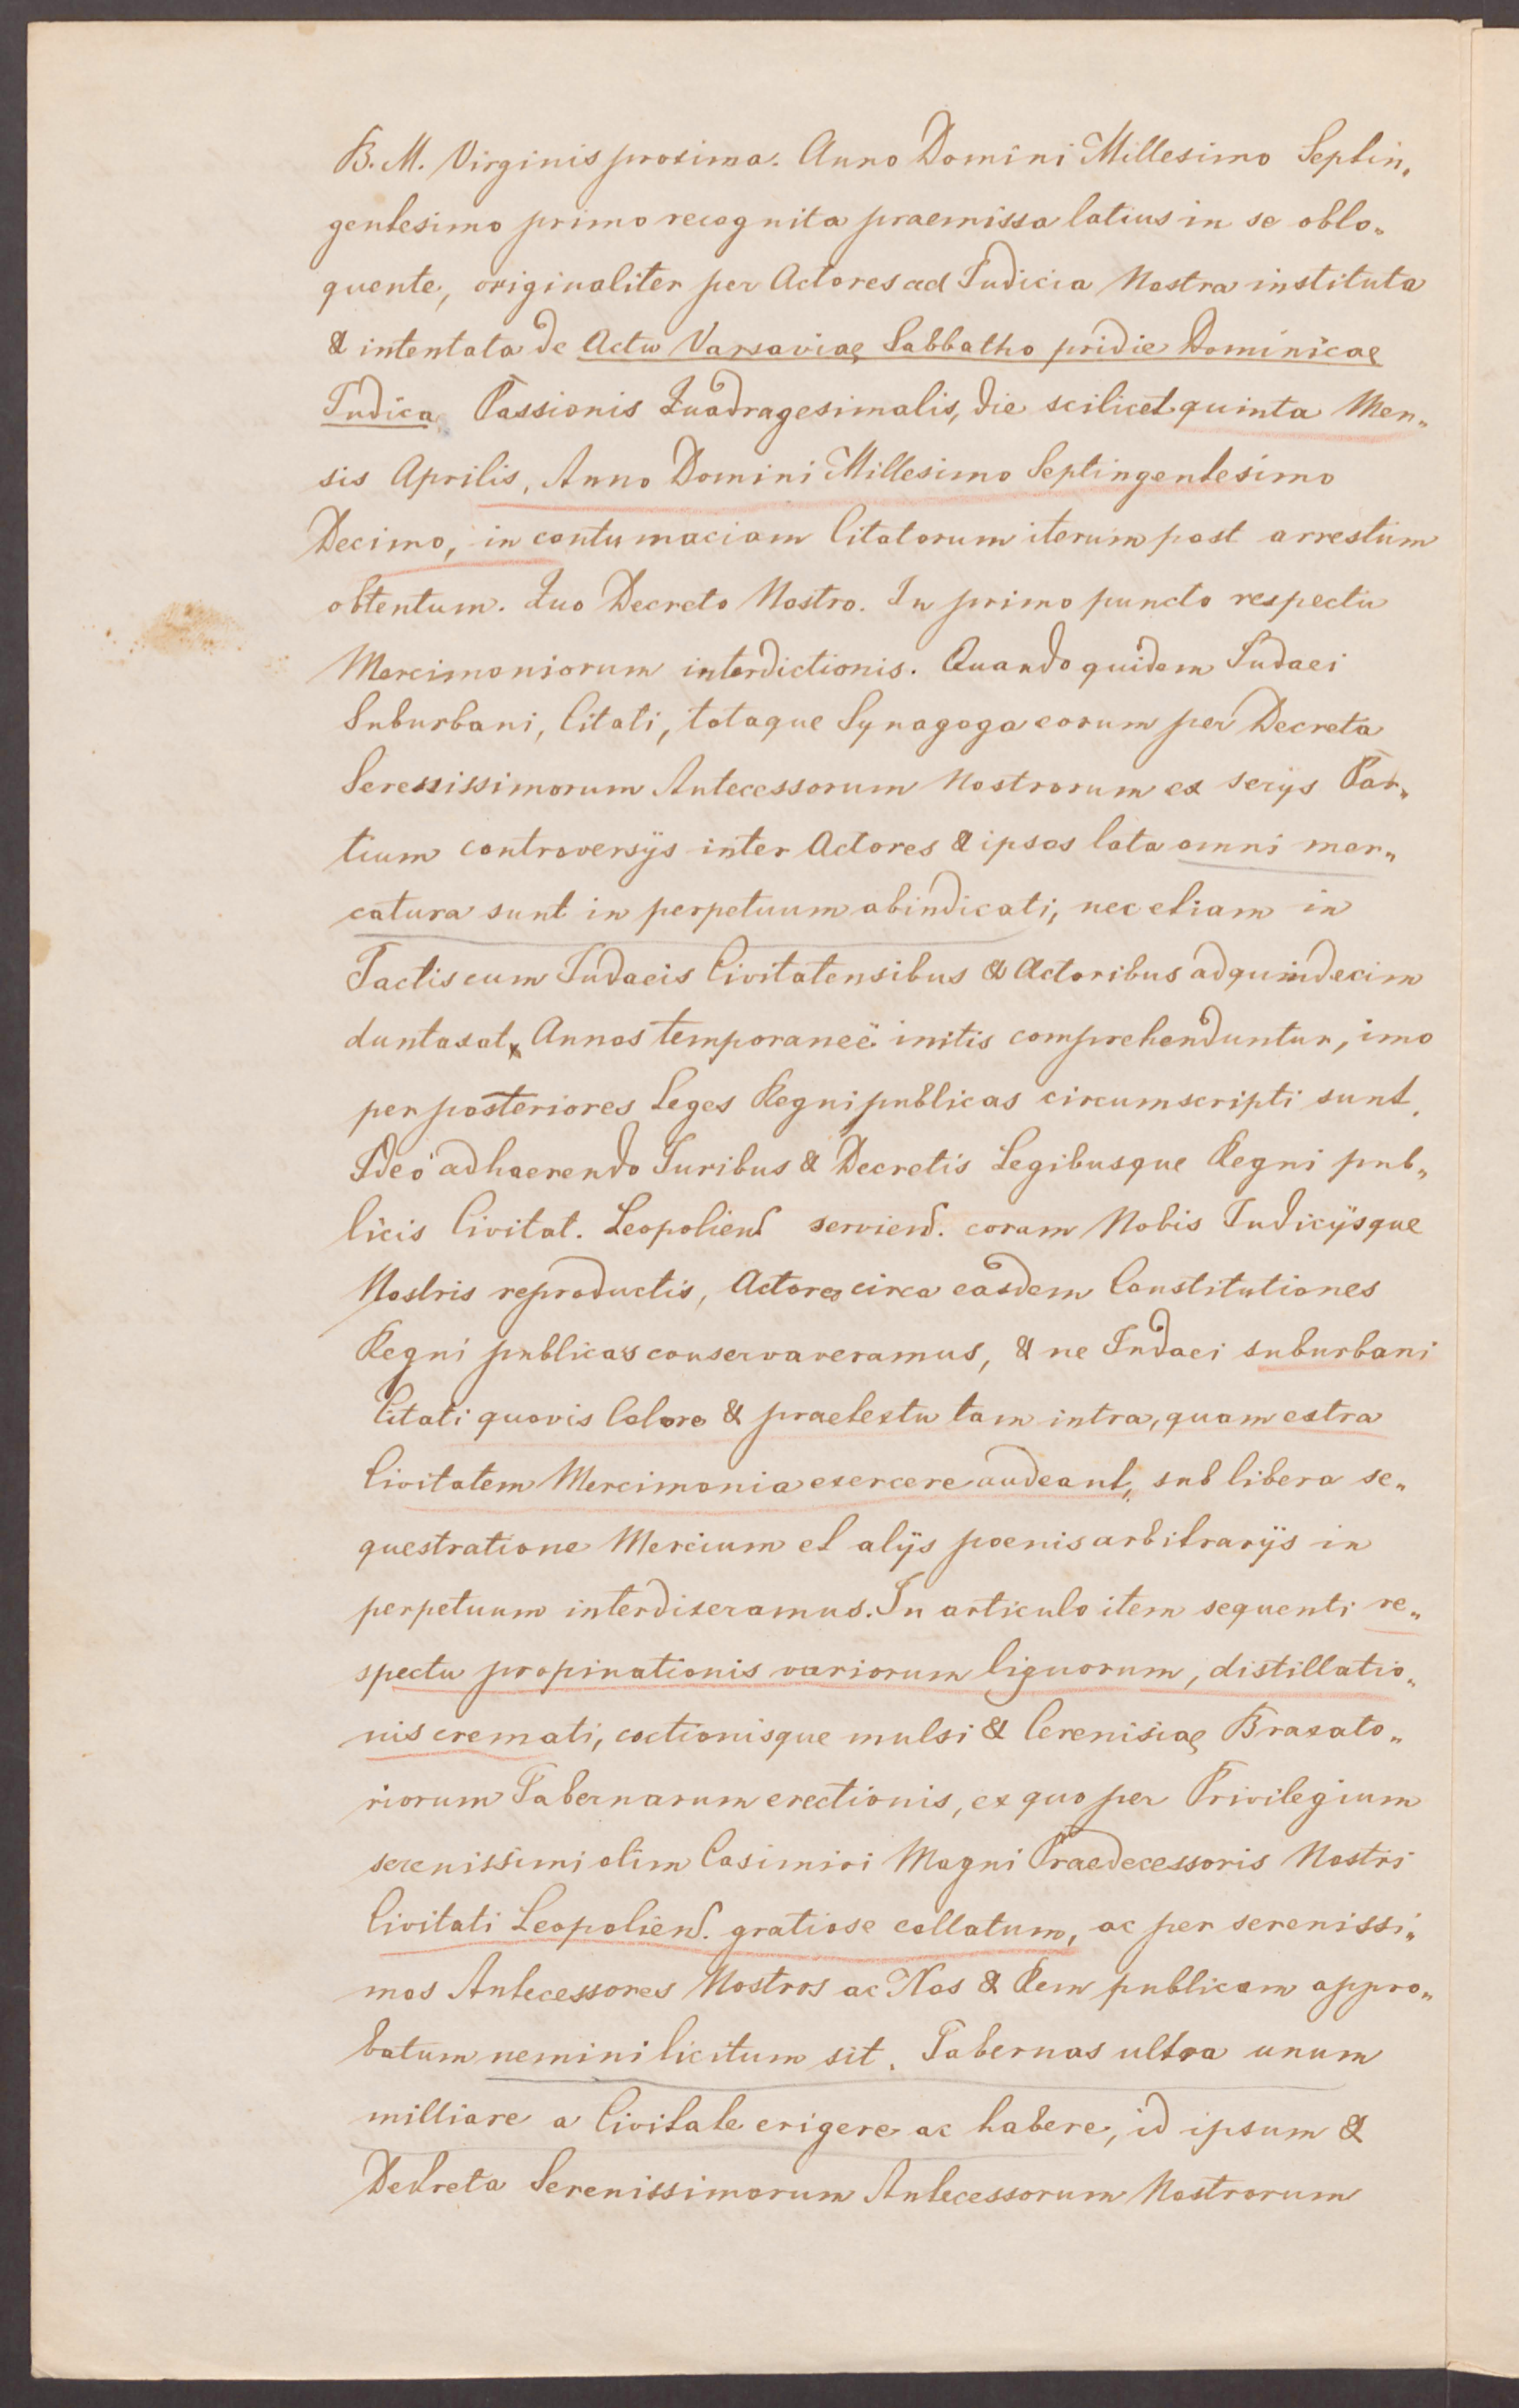 B. M. Virginis proxima. Anno Domini Millesimo Septin„
gentesimo primo recognita praemissa latius in se oblo„
quente, originaliter per Actores ad Judicia Nostra instituta
& intentata de Actu Varsaviae Sabbatho pridie Dominicae
Judica Passionis Quadragesimalis, die scilicet quinta Men„
sis Aprilis, Anno Domini Millesimo Septingentesimo
Decimo, in contumaciam Citatorum iterum post arrestum
obtentum. Quo Decreto Nostro. In primo puncto respectu
Mercimoniorum interdictionis. Quando quidem Judaei
Suburbani, Citati, totaque Synagoga eorum per Decreta
Serenissimorum Antecessorum Nostrorum ex serijs Par„
tium controversijs inter Actores & ipsos lata omni mer„
catura sunt in perpetuum abindicati, nec etiam in
Pactis cum Judaeis Civitatensibus & Actoribus ad quindecim
duntaxat Annos temporaneë initis comprehenduntur, imo
per posteriores Leges Regni publicas circumscripti sunt.
Ideo adhaerendo Juribus & Decretis Legibusque Regni pub„
licis Civitat. Leopoliens. serviend. coram Nobis Judicijsque
Nostris reproductis, Actores circa easdem Constitutiones
Regni publicas conservaveramus, & ne Judaei suburbani
Citati quovis Colore & praetextu tam intra, quam extra
Civitatem Mercimonia exercere audeant, sub libera se„
questratione Mercium et alijs poenis arbitrarijs in
perpetuum interdixeramus. In articulo item sequenti re„
spectu propinationis variorum liquorum, distillatio„
nis cremati, coctionisque mulsi & Cerenisiae Braxato„
riorum Tabernarum erectionis, ex quo per Privilegium
serenissimi olim Casimiri Magni Praedecessoris Nostri
Civitati Leopoliens. gratiose collatum, ac per serenissi„
mos Antecessores Nostros ac Nos & Rem publicam appro„
batum nemini licitum sit. Tabernas ultra unum
milliare a Civitate erigere ac habere, id ipsum &
Decreta Serenissimorum Antecessorum Nostrorum